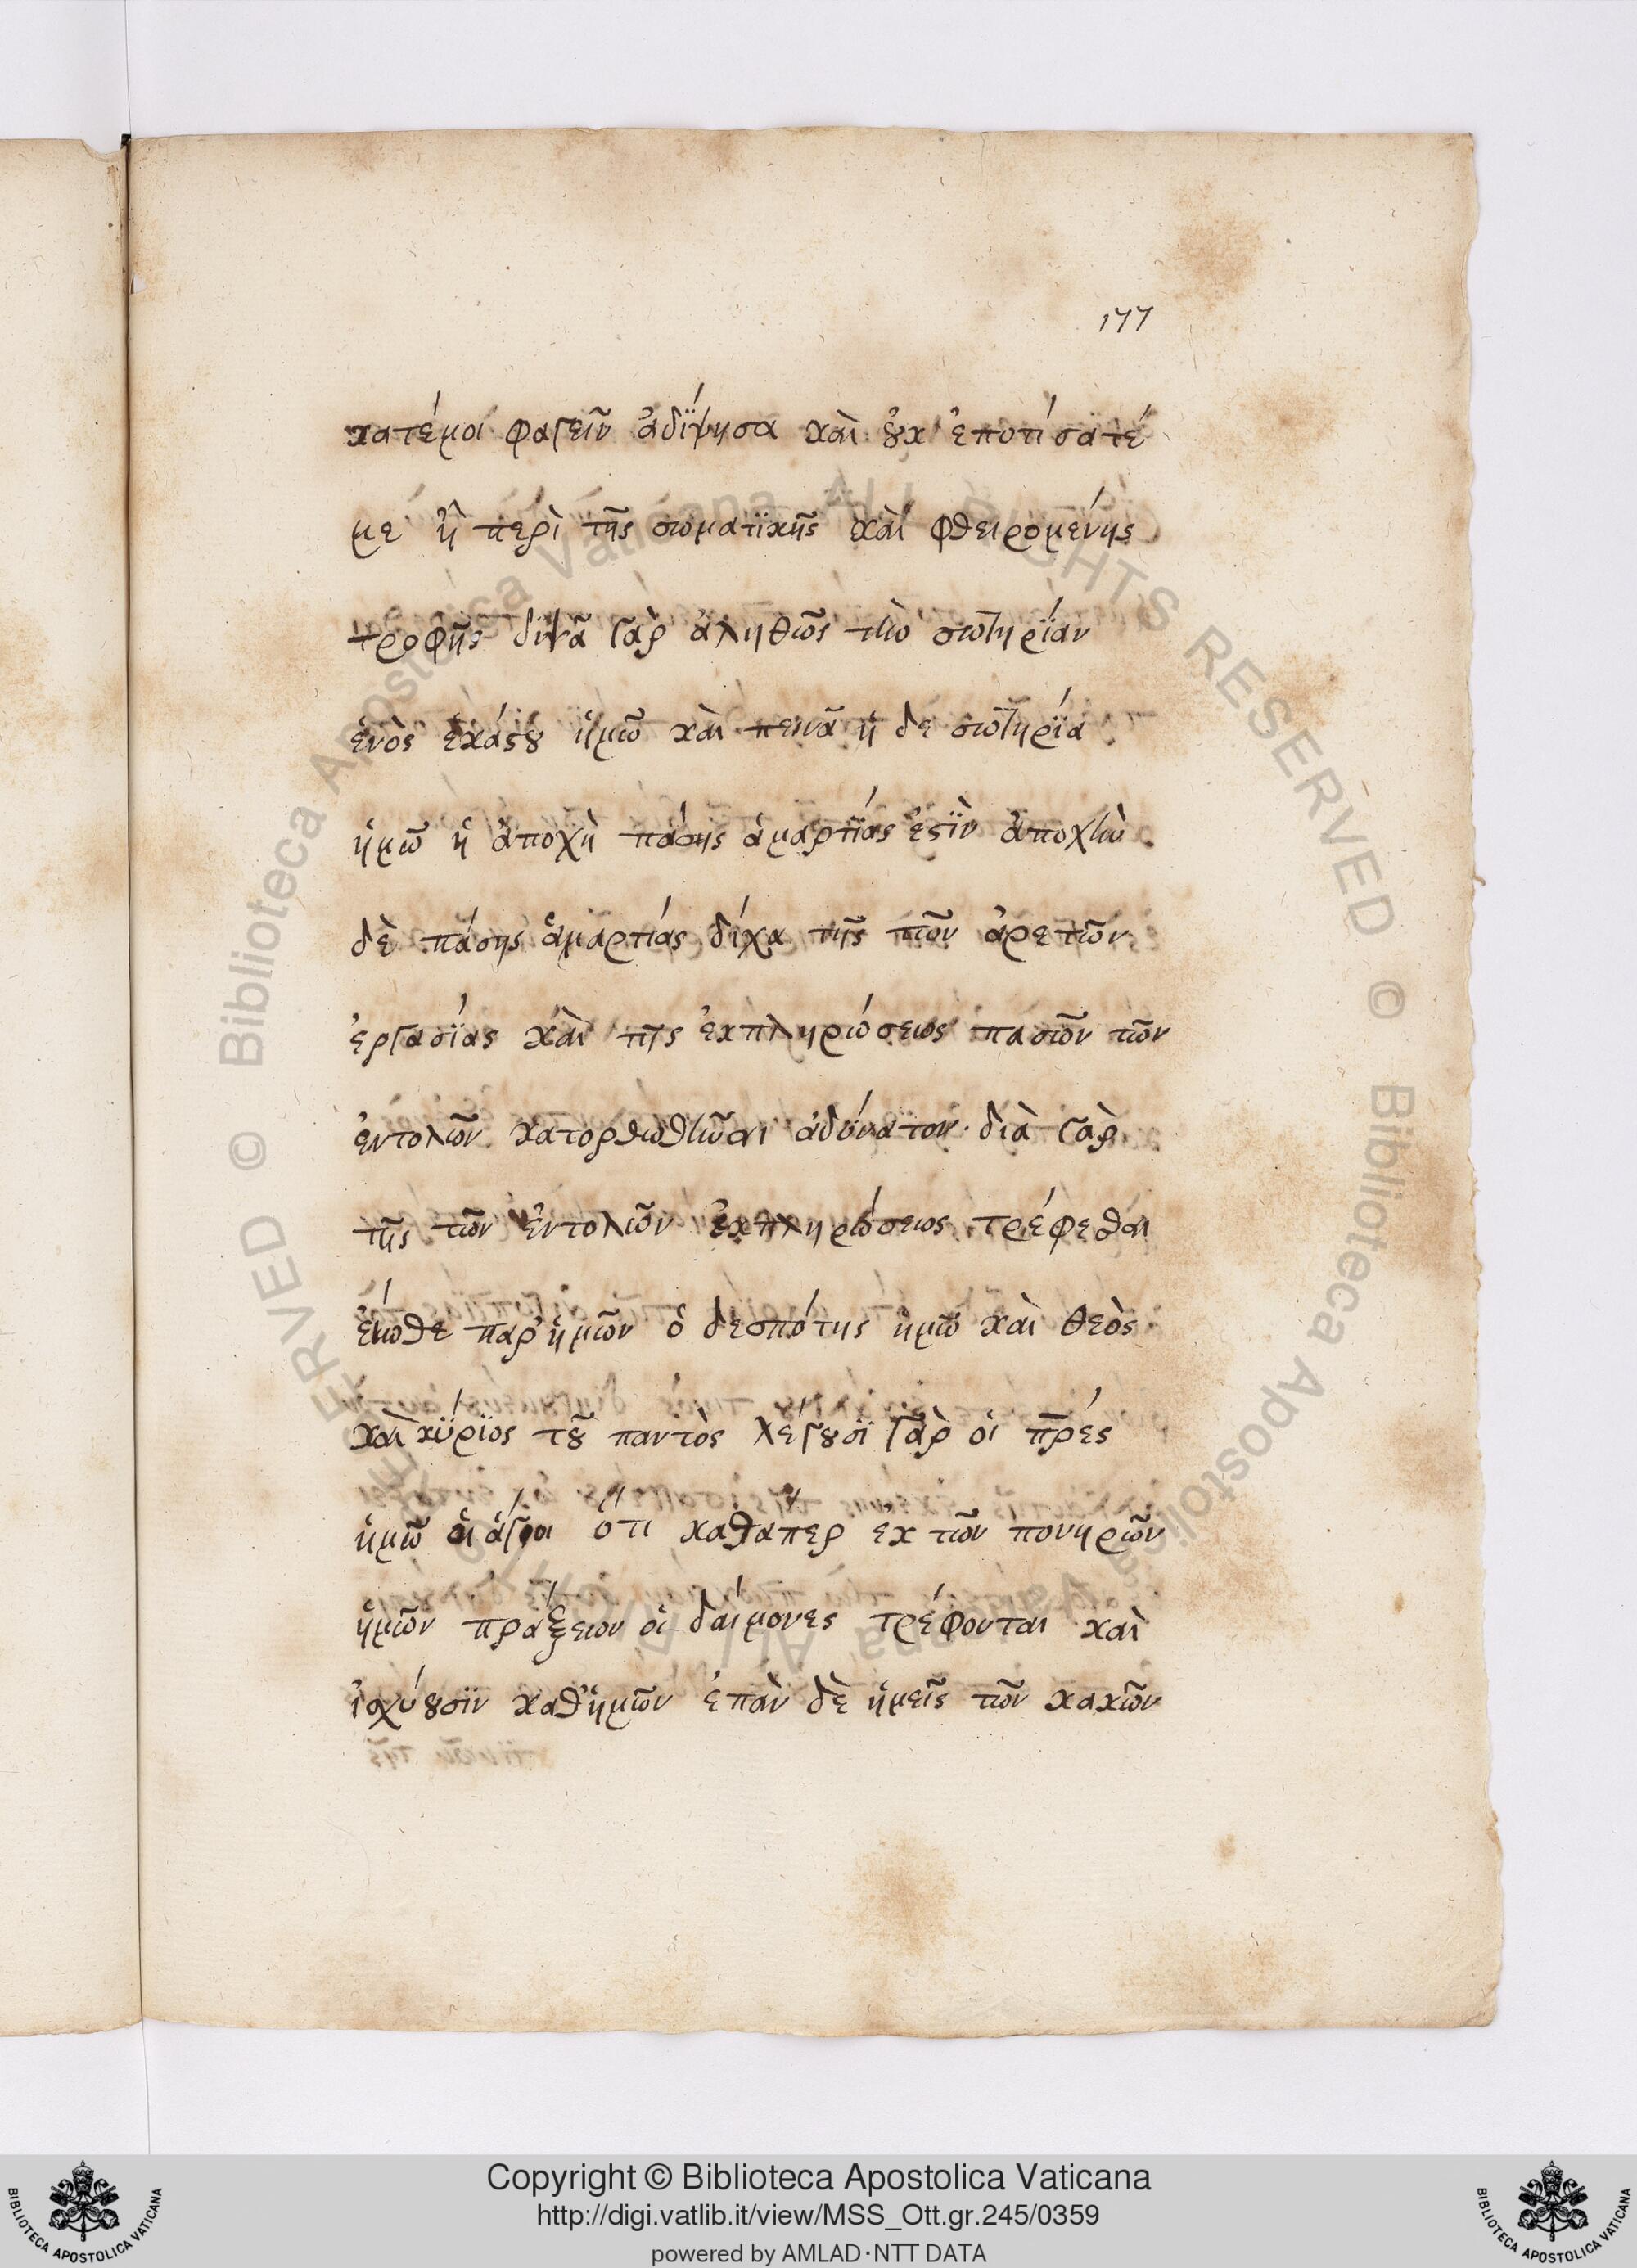 177
κατέμοι φαγεῖν ἀδΐψησα καὶ οὐκ ἐποτίσατέ
με ἢ περὶ τῆς σωματϊκῆς καὶ φθειρομένης
τροφῆς διψᾶ γὰρ ἀληθῶς τὴν σωτηρΐαν
ἑνὸς ἑκάστου ἡμῶν καὶ πεινᾶ ἡ δε σωτηρΐα
ἡμῶν ἡ ἀποχὴ πάσης ἁμαρτΐας ἐστϊν ἀποχὴν
δὲ πάσης ἁμαρτίας δίχα τῆς τῶν ἀρετῶν
ἐργασΐας καὶ τῆς ἐκπληρώσεως πασῶν τῶν
ἐντολῶν κατορθωθῆναι ἀδύνατον· διὰ γὰρ
τῆς τῶν ἐντολῶν ἐκπληρώσεως τρέφεσθαι
εἴωθε παρ' ἡμῶν ὁ δεσπότης ἡμῶν καὶ θεὸς
καὶ κΰρϊος τοῦ παντὸς λέγουσϊ γὰρ οἱ πρές
ἡμῶν οἱ ἅγιοι ὅτι καθάπερ εκ τῶν πονηρῶν
ἡμῶν πράξεων οἱ δαίμονες τρέφονται καὶ
ἰσχύουσϊν καθ' ἡμῶν ἐπὰν δὲ ἡμεῖς τῶν κακῶν
Copyright © Biblioteca Apostolica Vaticana
http://digi.vatlib.it/view/MSS_Ott.gr.245/0359
powered by AMLAD·NTT DATA
BIBLIOTECA APOSTOLICA VATICANA
BIBLIOTECA APOSTOLICA VATICANA
© Biblioteca Apostolica Vaticana ALL RIGHTS RESERVED © Biblioteca Apostolica Vaticana ALL RIGHTS RESERVED